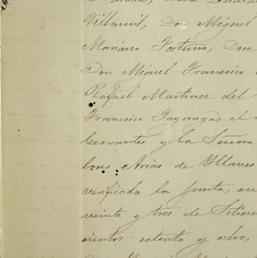 Villamil, Don Miguel
Mariano Fortuno, Don
Don Miguel Francisco
Rafael Martinez del
Francisco Guyangos el
Cervantes y la Señora
Arias de Yllanes
verificada la junta, en
veinte y tres de
cientos setenta y ocho,